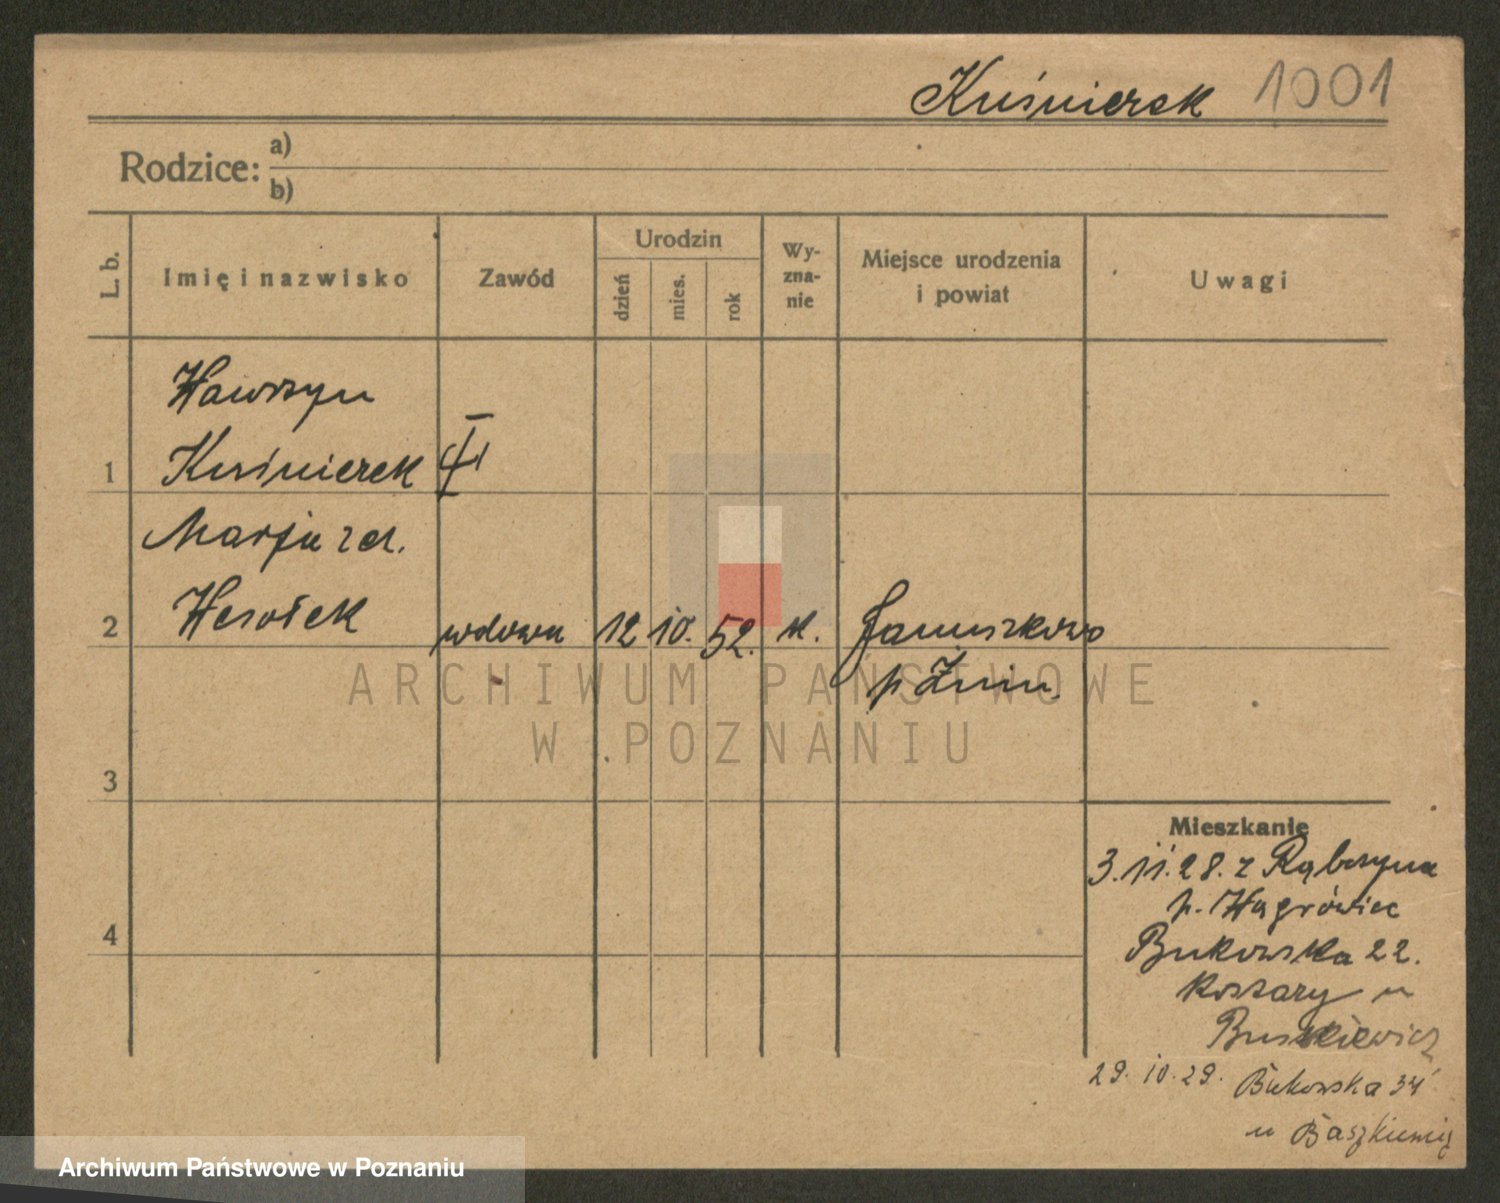 Kuśnierek 1001
Rodzice: a)
b)
L. b.
Imię i nazwisko
Zawód
Urodzin
dzień
mies.
rok
Wy-
zna-
nie
Miejsce urodzenia
i powiat
Uwagi
Wawrzyn
1 Kuśnierek
Marja zd.
2 Wesołek wdowa 12 10. 52. k. Januszkowo
p Żnin.
ARCHIWUM PAŃSTWOWE
W POZNANIU
3
4
Mieszkanie
3.11.28. z Rąbczyna
p. Wągrówiec
Bukowska 22.
Koszary u
29.10.29. Bukowska 34
u
Archiwum Państwowe w Poznaniu